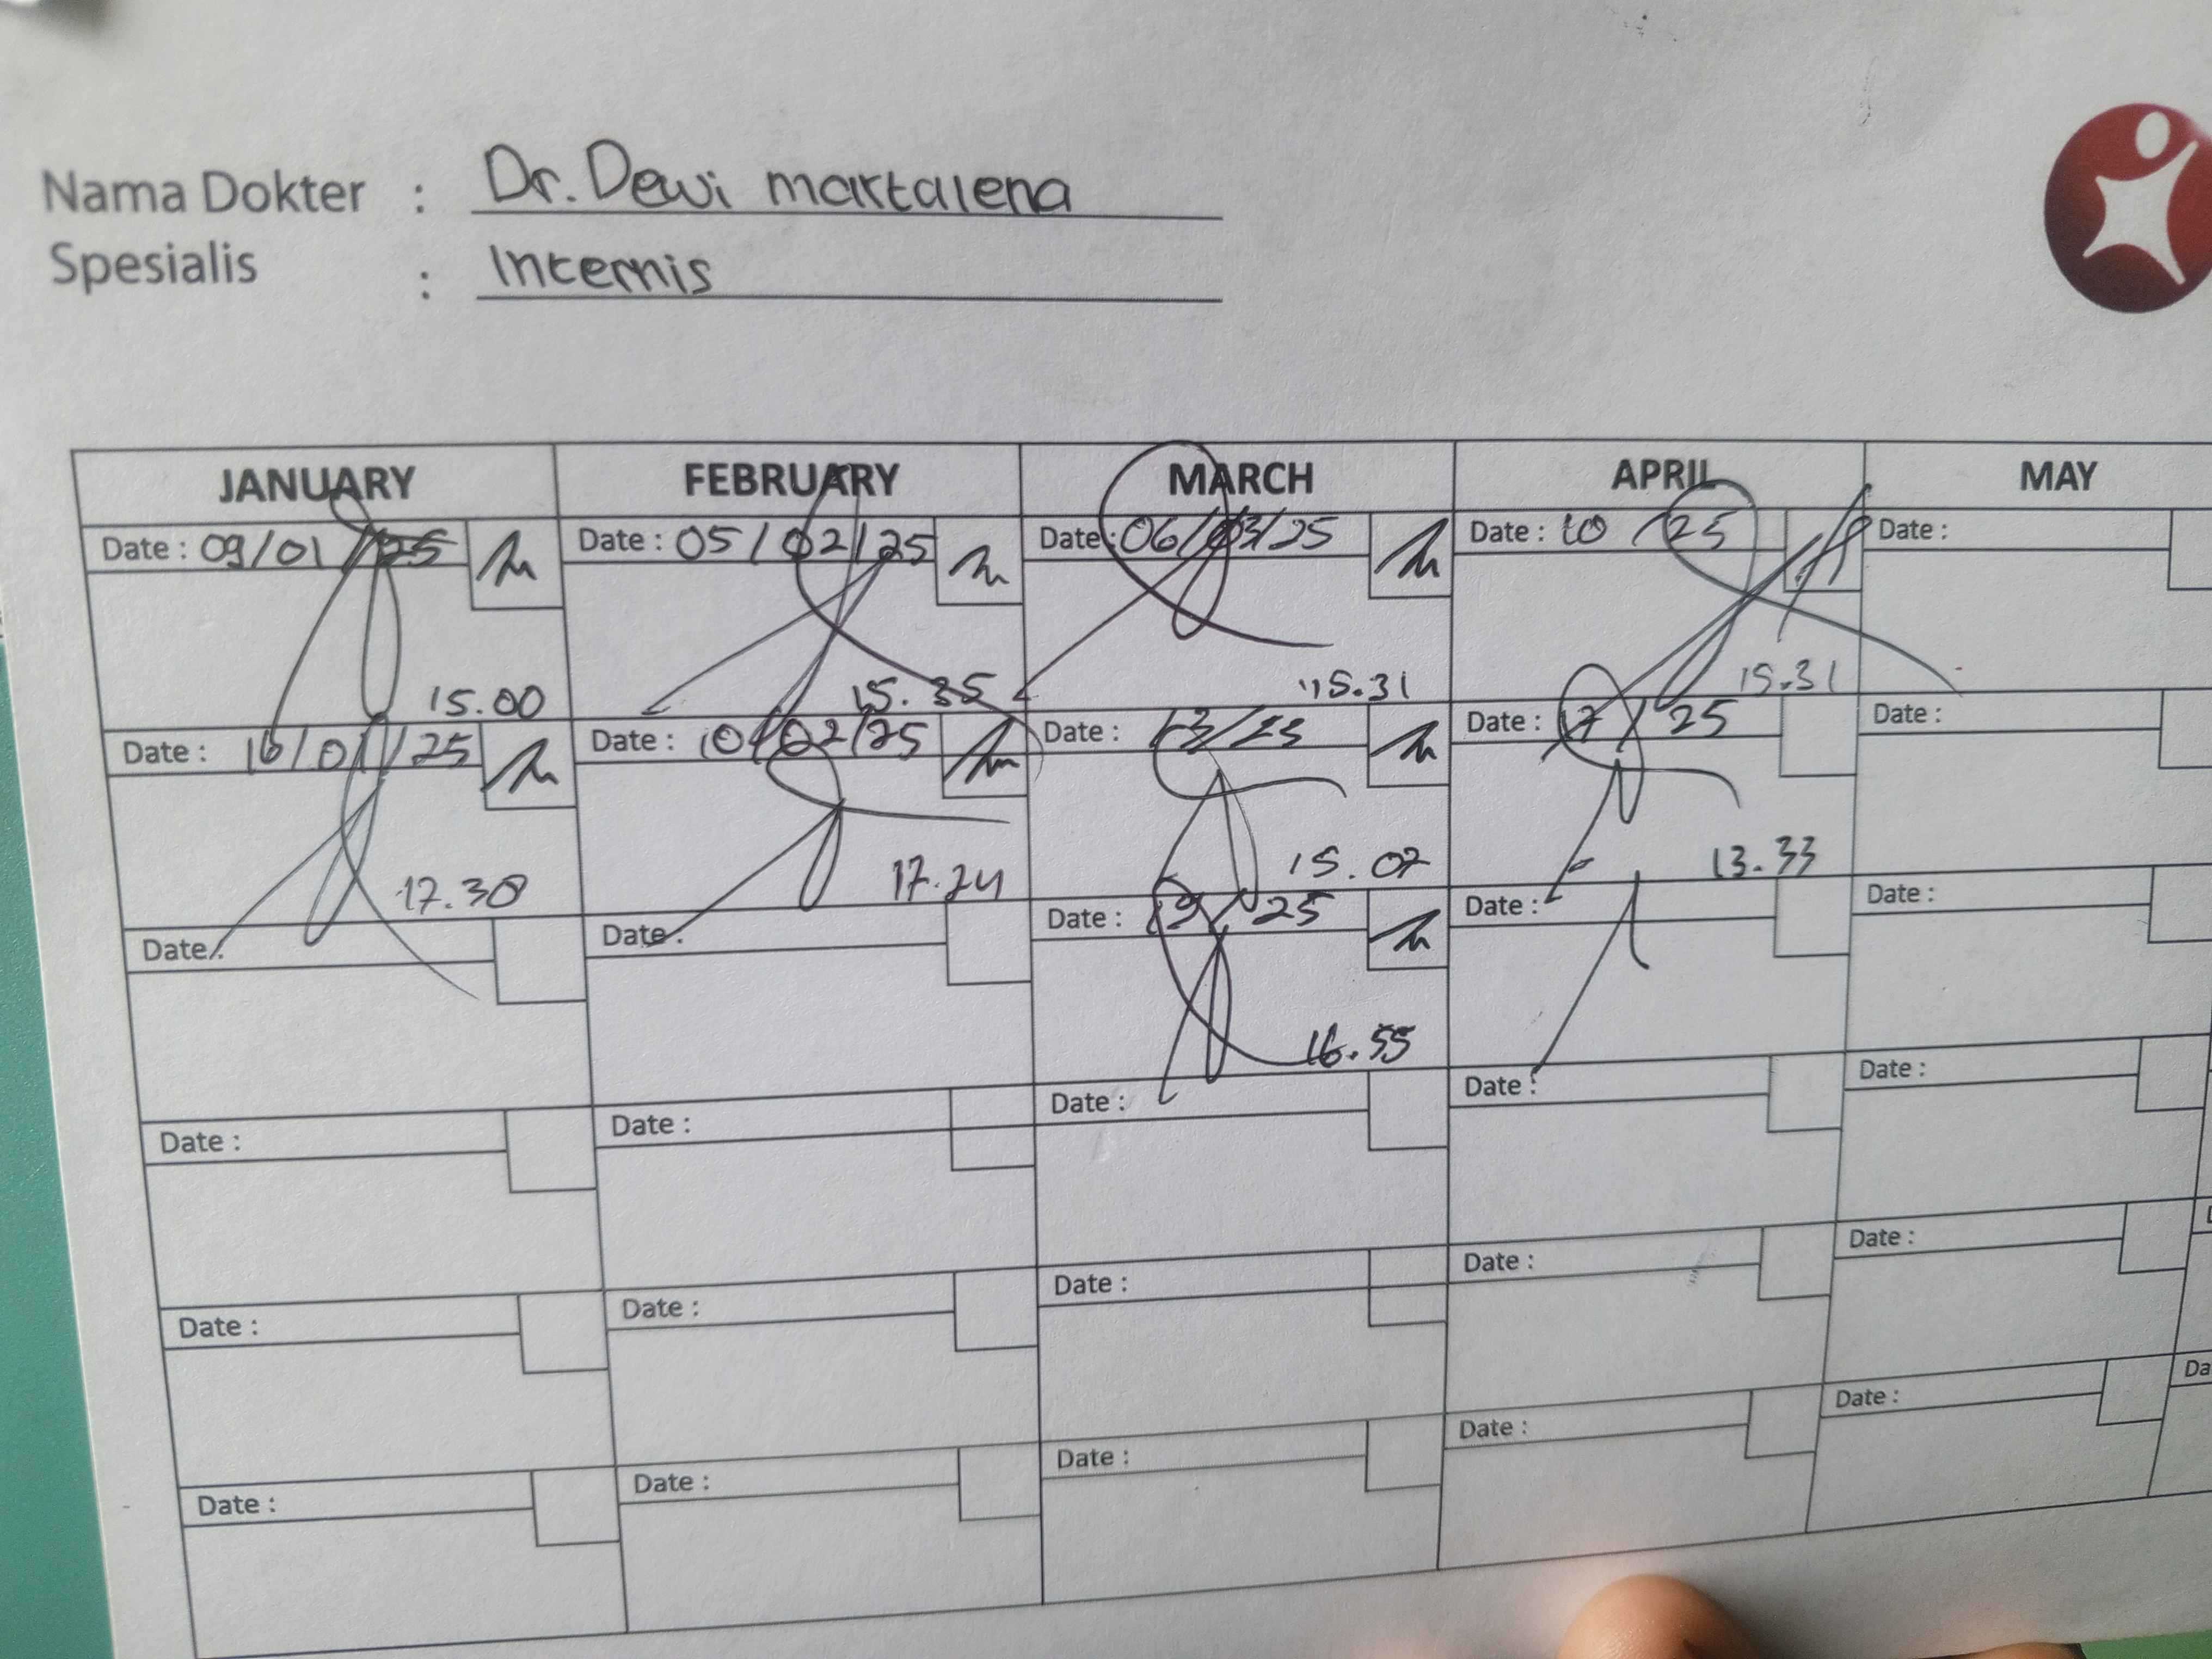 Nama Dokter : Dr. Dewi martalena
Spesialis : Internis
JANUARY FEBRUARY MARCH APRIL MAY
Date : 09/01/25 Date : 05/02/25 Date : 06/03/25 Date : 10 / 25 Date :
15.00 15.35 15.31 15.31
Date : 16/01/25 Date : 10/02/25 Date : 13/25 Date : 17 / 25 Date :
17.30 17.24 15.07 13.33
Date : Date : Date : 25 Date : Date :
16.55
Date : Date : Date : Date : Date :
Date : Date : Date : Date : Date :
Date : Date : Date : Date : Date :